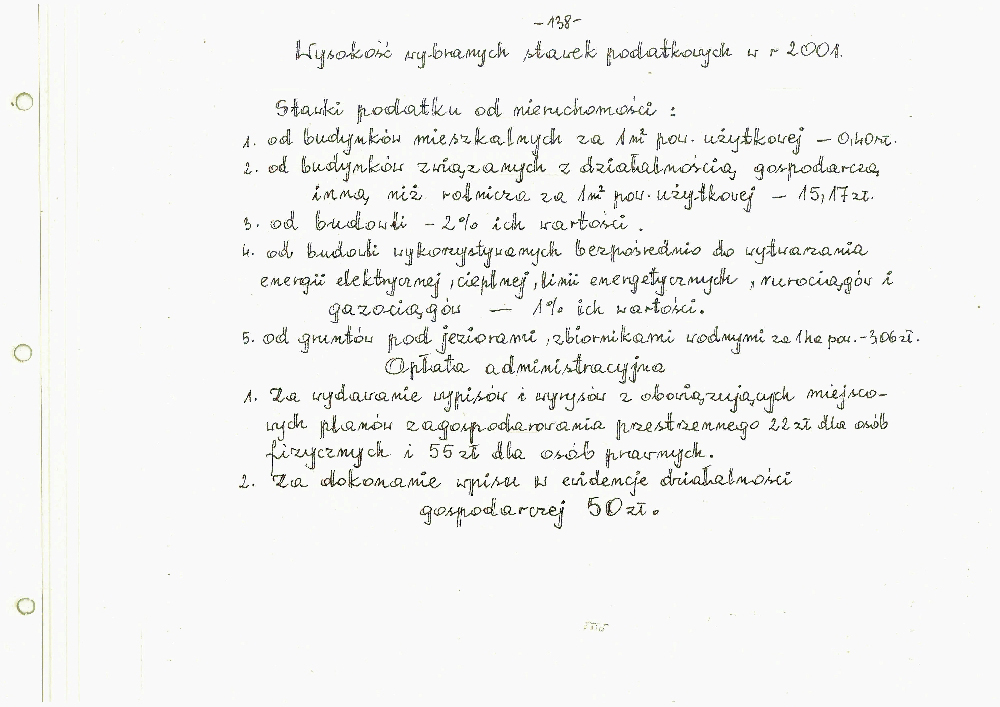 -138-
Wysokość wybranych stawek podatkowych w r 2001.
Stawki podatku od nieruchomości :
1. od budynków mieszkalnych za 1m² pow. użytkowej - 0,40zł.
2. od budynków związanych z działalnością gospodarczą
inną niż rolnicza za 1m² pow. użytkowej - 15,17zł.
3. od budowli - 2% ich wartości .
4. od budowli wykorzystywanych bezpośrednio do wytwarzania
energii elektrycznej, cieplnej, linii energetycznych, rurociągów i
gazociągów - 1% ich wartości.
5. od gruntów pod jeziorami, zbiornikami wodnymi za 1ha pow. - 3,06zł.
Opłata administracyjna
1. Za wydawanie wypisów i wyrysów z obowiązujących miejsco-
wych planów zagospodarowania przestrzennego 22zł dla osób
fizycznych i 55zł dla osób prawnych.
2. Za dokonanie wpisu w ewidencje działalności
gospodarczej 50zł.